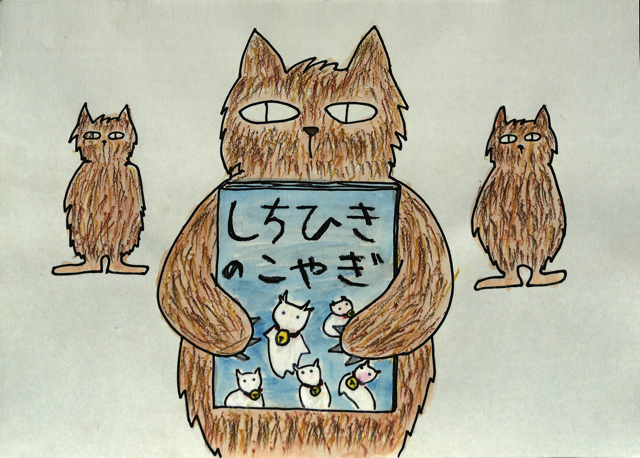 しちひき
のこやぎ